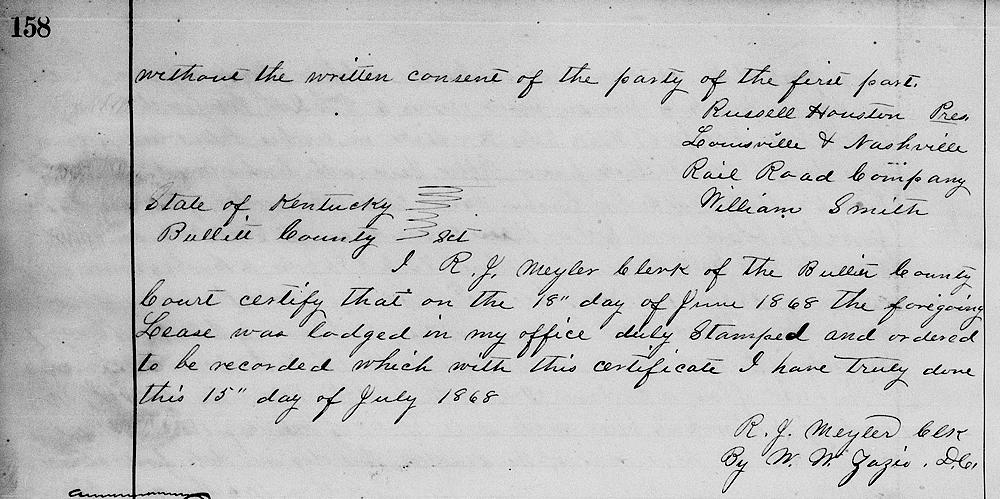 158
without the written consent of the party of the first part.
Russell Houston Pres
Louisville & Nashville
Rail Road Company
William Smith
State of Kentucky
Bullitt County Sct
I R. J. Meyler Clerk of the Bullitt County
Court certify that on the 18" day of June 1868 the foregoing
Lease was lodged in my office duly Stamped and ordered
to be recorded which with this certificate I have truly done
this 15" day of July 1868
R. J. Meyler Clk
By W. W. D.C.